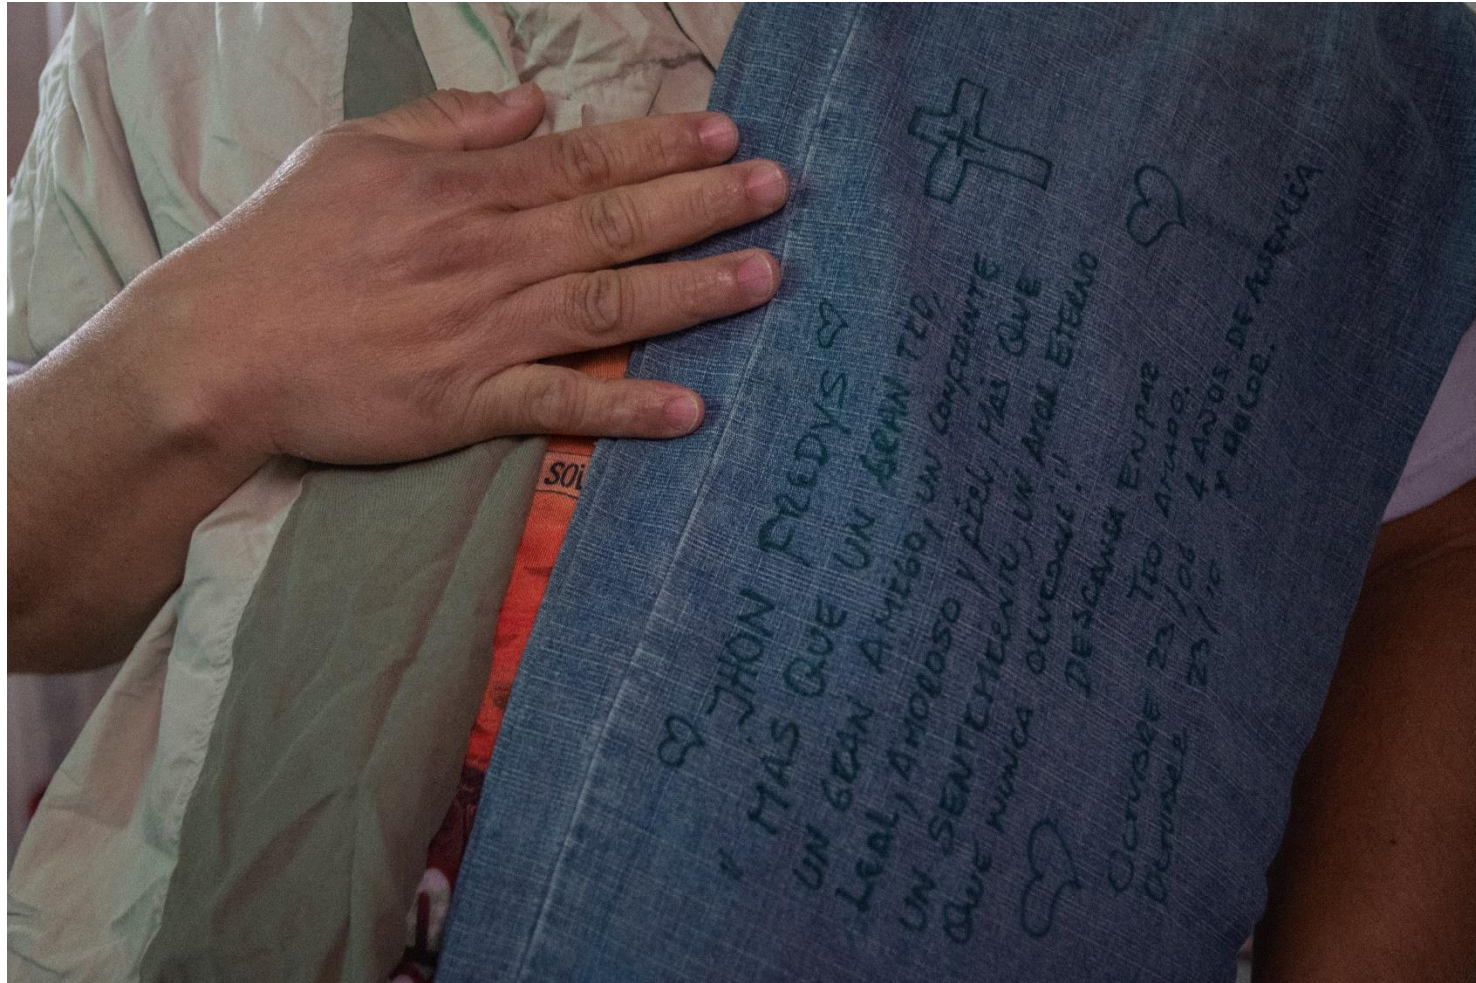 JHON FREDYS
" MÁS QUE UN GRAN TÍO,
UN GRAN AMIGO, UN CONFIDENTE
LEAL, AMOROSO Y FIEL MÁS QUE
UN SENTIMIENTO, UN AMOR ETERNO
QUE NUNCA OLVIDARÉ!!
DESCANSA EN PAZ
TIO AMADO.
OCTUBRE 23/06 4 AÑOS DE AUSENCIA
OCTUBRE 23/10 Y DOLOR.
SOL